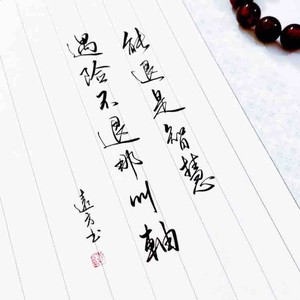 能退是智慧
遇险不退那叫轴
远方书